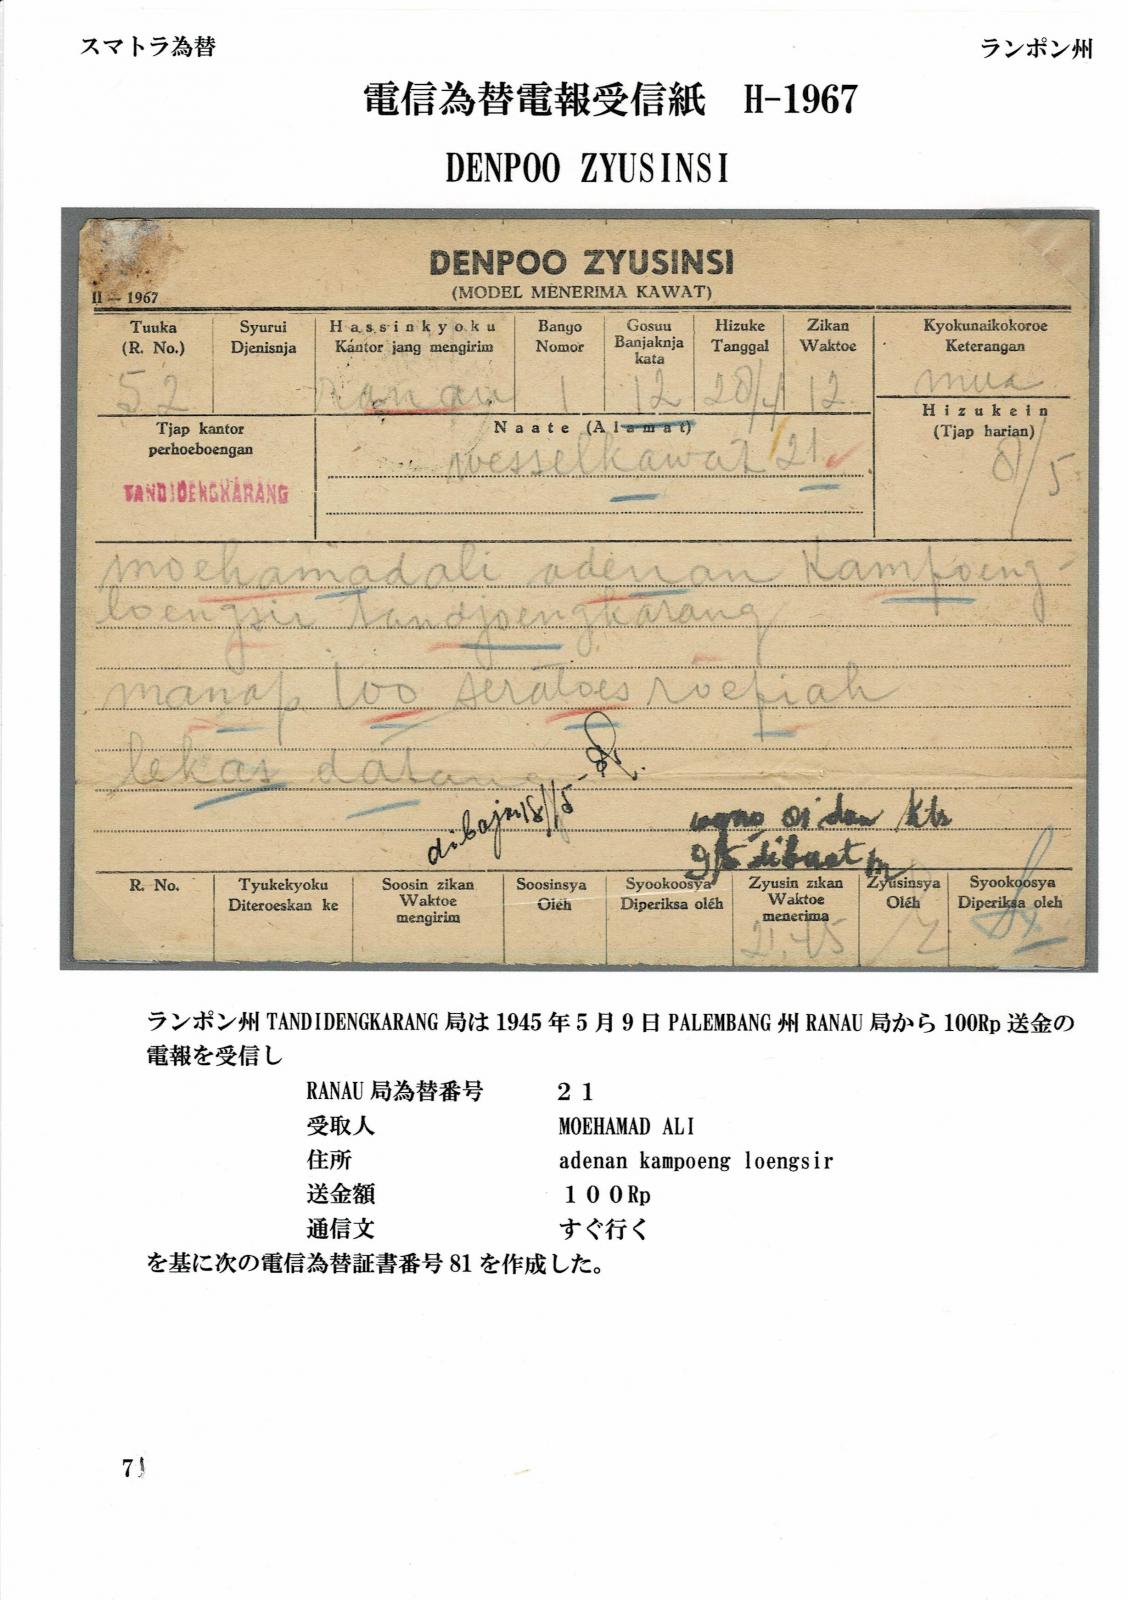 スマトラ為替
ランポン州
電信為替電報受信紙 H-1967
DENPOO ZYUSINSI
DENPOO ZYUSINSI
(MODEL MENERIMA KAWAT)
II — 1967
Tuuka (R. No.)
Syurui Djenisnja
Hassinkyoku Kantor jang mengirim
Bango Nomor
Gosuu Banjaknja kata
Hizuke Tanggal
Zikan Waktoe
Kyokunaikokoroe Keterangan
52 ranau 1 12 28/4 12 mua
Tjap kantor perhoeboengan
Naate (Alamat)
Hizukein (Tjap harian)
wesselkawat 21
8/5
TANDIDENGKARANG
moehamadali adenan Kampoeng-
loengsir tandjoengkarang
manap 100 seratoes roepiah
lekas datang
dibajar 18/5-
01 dan ktr
9/5 dibuat
R. No.
Tyukekyoku Diteroeskan ke
Soosin zikan Waktoe mengirim
Soosinsya Oléh
Syookoosya Diperiksa oléh
Zyusin zikan Waktoe menerima
Zyusinsya Oléh
Syookoosya Diperiksa oleh
21.45
ランポン州 TANDIDENGKARANG 局は 1945 年 5 月 9 日 PALEMBANG 州 RANAU 局から 100Rp 送金の
電報を受信し
RANAU 局為替番号 21
受取人 MOEHAMAD ALI
住所 adenan kampoeng loengsir
送金額 100Rp
通信文 すぐ行く
を基に次の電信為替証書番号 81 を作成した。
71